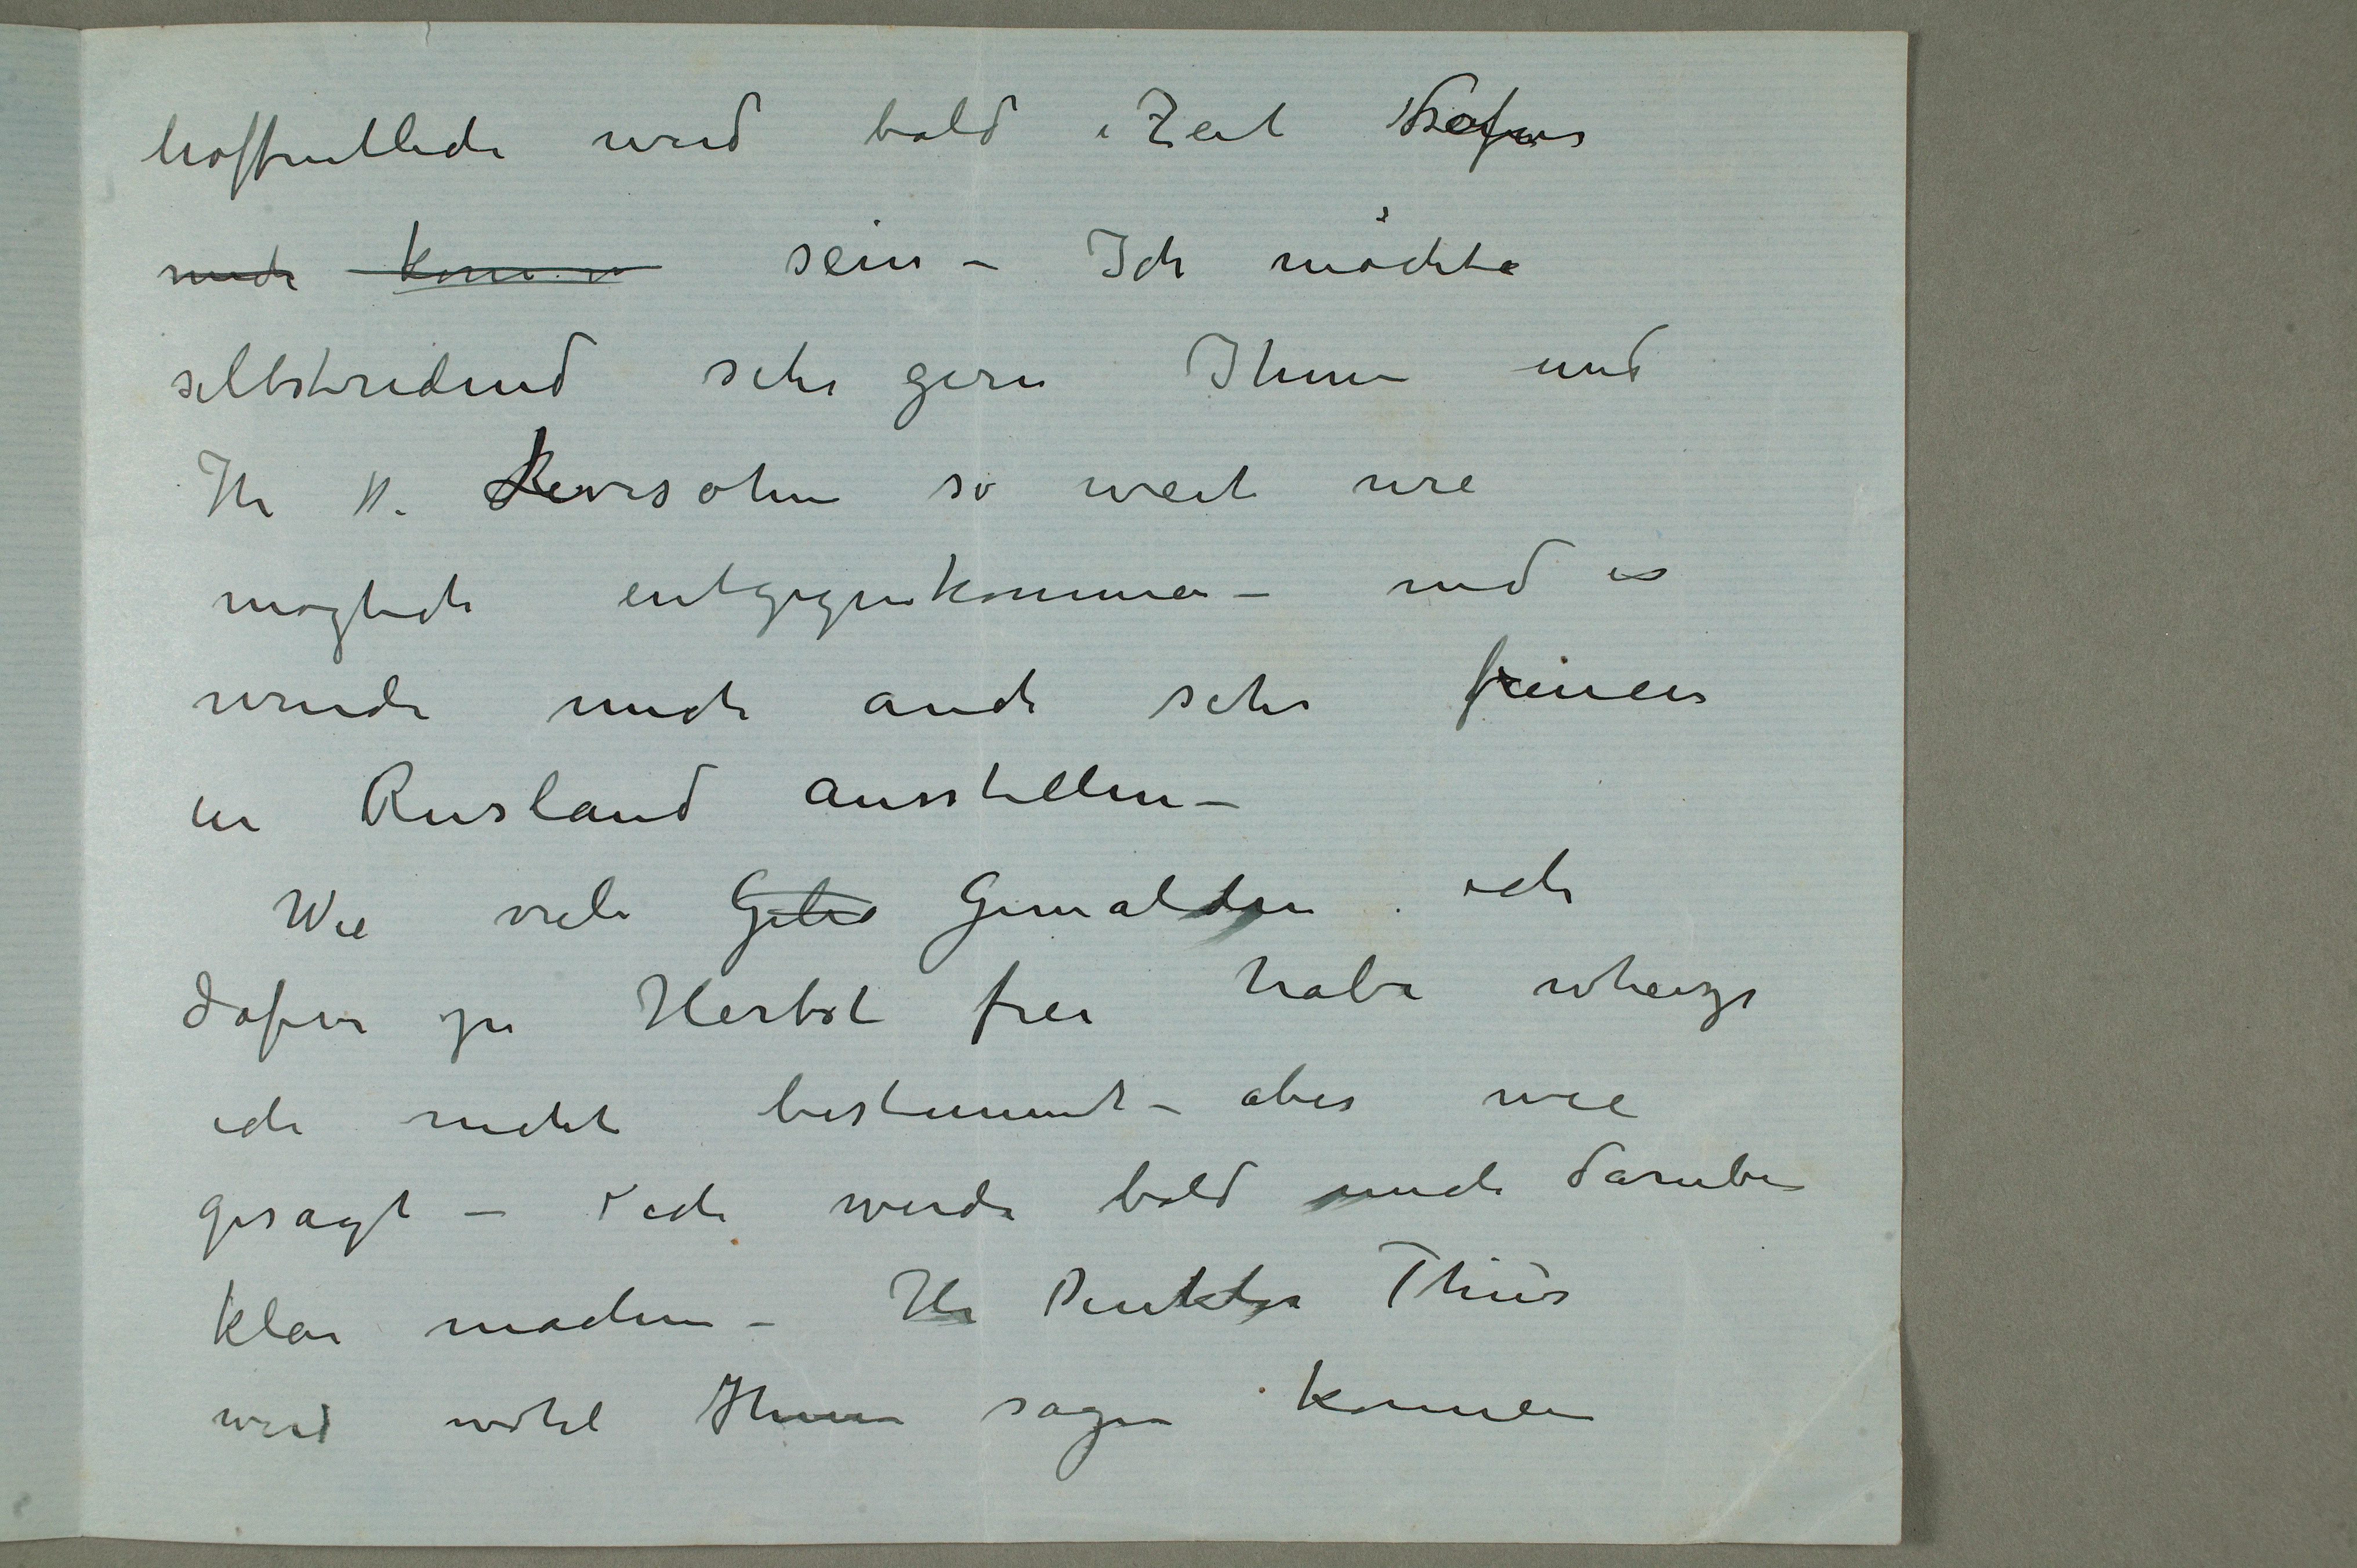 hoffentlich wird bald Zeit dafür
mich kommen sein – Ich möchte
selbstredend sehr gern Ihnen und
Hr P. Levisohn so weit wie
moglich entgegenkommen – und es
wurde mich auch sehr freuen
in Rusland ausstellen –
Wie viele Geld Gemälden ich
dafur zu Herbst frei habe
ich nicht bestimmt – aber wie
gesagt – ich werde bald mich daruber
klar machen – Hr Direktor Thiis
wird wohl Ihnen sagen konnen